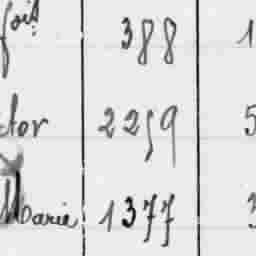 foit 388 1
ctor 2259 5
Marie 1377 3